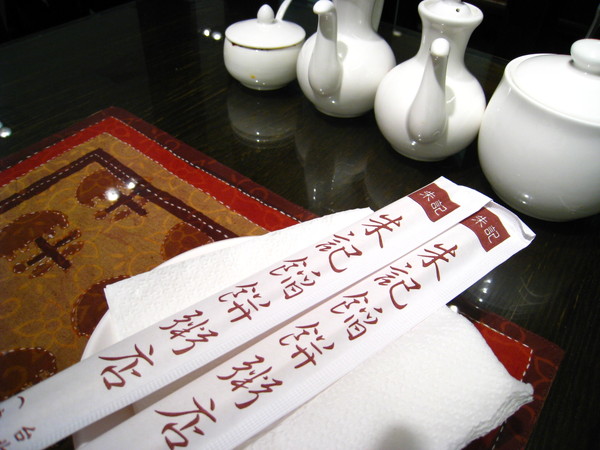 朱記
朱記餡餅粥店
(台
朱記
朱記餡餅粥店